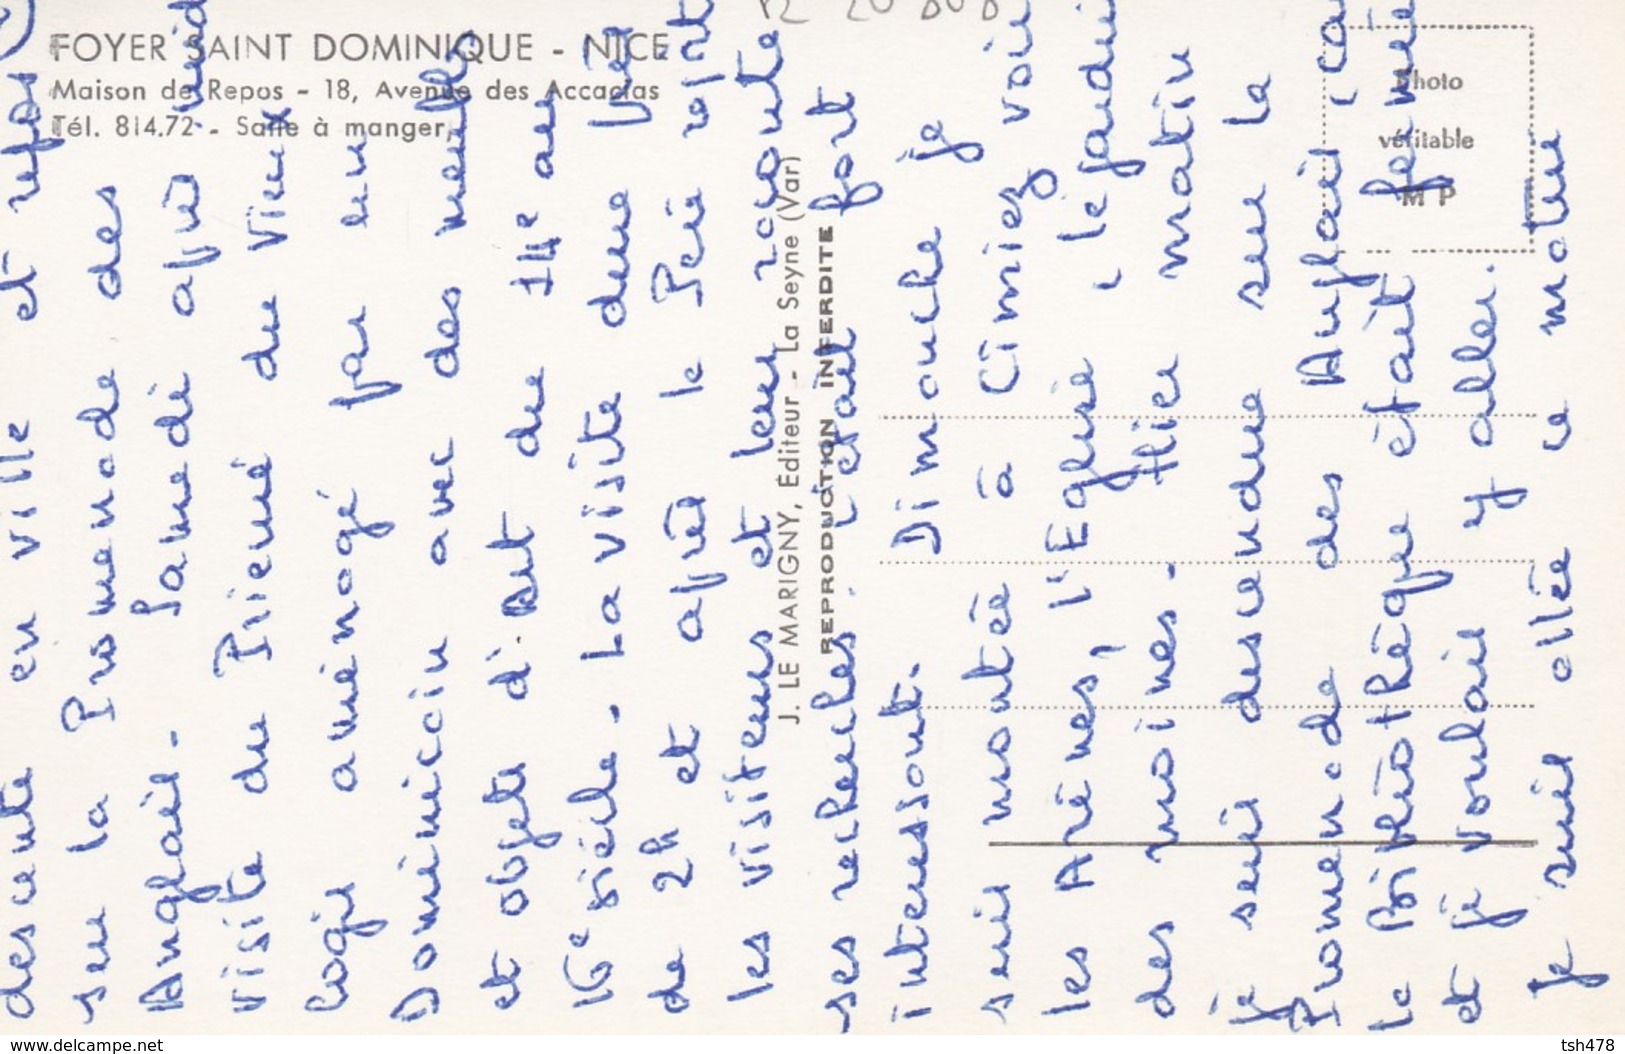 FOYER SAINT DOMINIQUE - NICE
Maison de Repos - 18, Avenue des Accacias
Tél. 814.72 - Salle à manger
J. LE MARIGNY, Editeur - La Seyne (Var)
REPRODUCTION INTERDITE
Photo
véritable
M P
descente en ville et repos
sur la Promenade des
Anglais - Samedi après midi
visite du Prieuré du Vieux
logis aménagé par un
Dominicain avec des meubles
et objets d'Art du 14e au
16e siècle. La visite dure près
de 2h et après le Père
les visiteurs et leur raconte
ses recherches. c'était fort
interessant. Dimanche je
suis montée à Cimiez voir
les Arènes, l'Eglise, le jardin
des moines. Hier matin
je suis descendue sur la
Promenade des Anglais, car
la Bibliothèque était fermée
et je voulais y aller.
Je suis allée ce matin
www.delcampe.net
tsh478